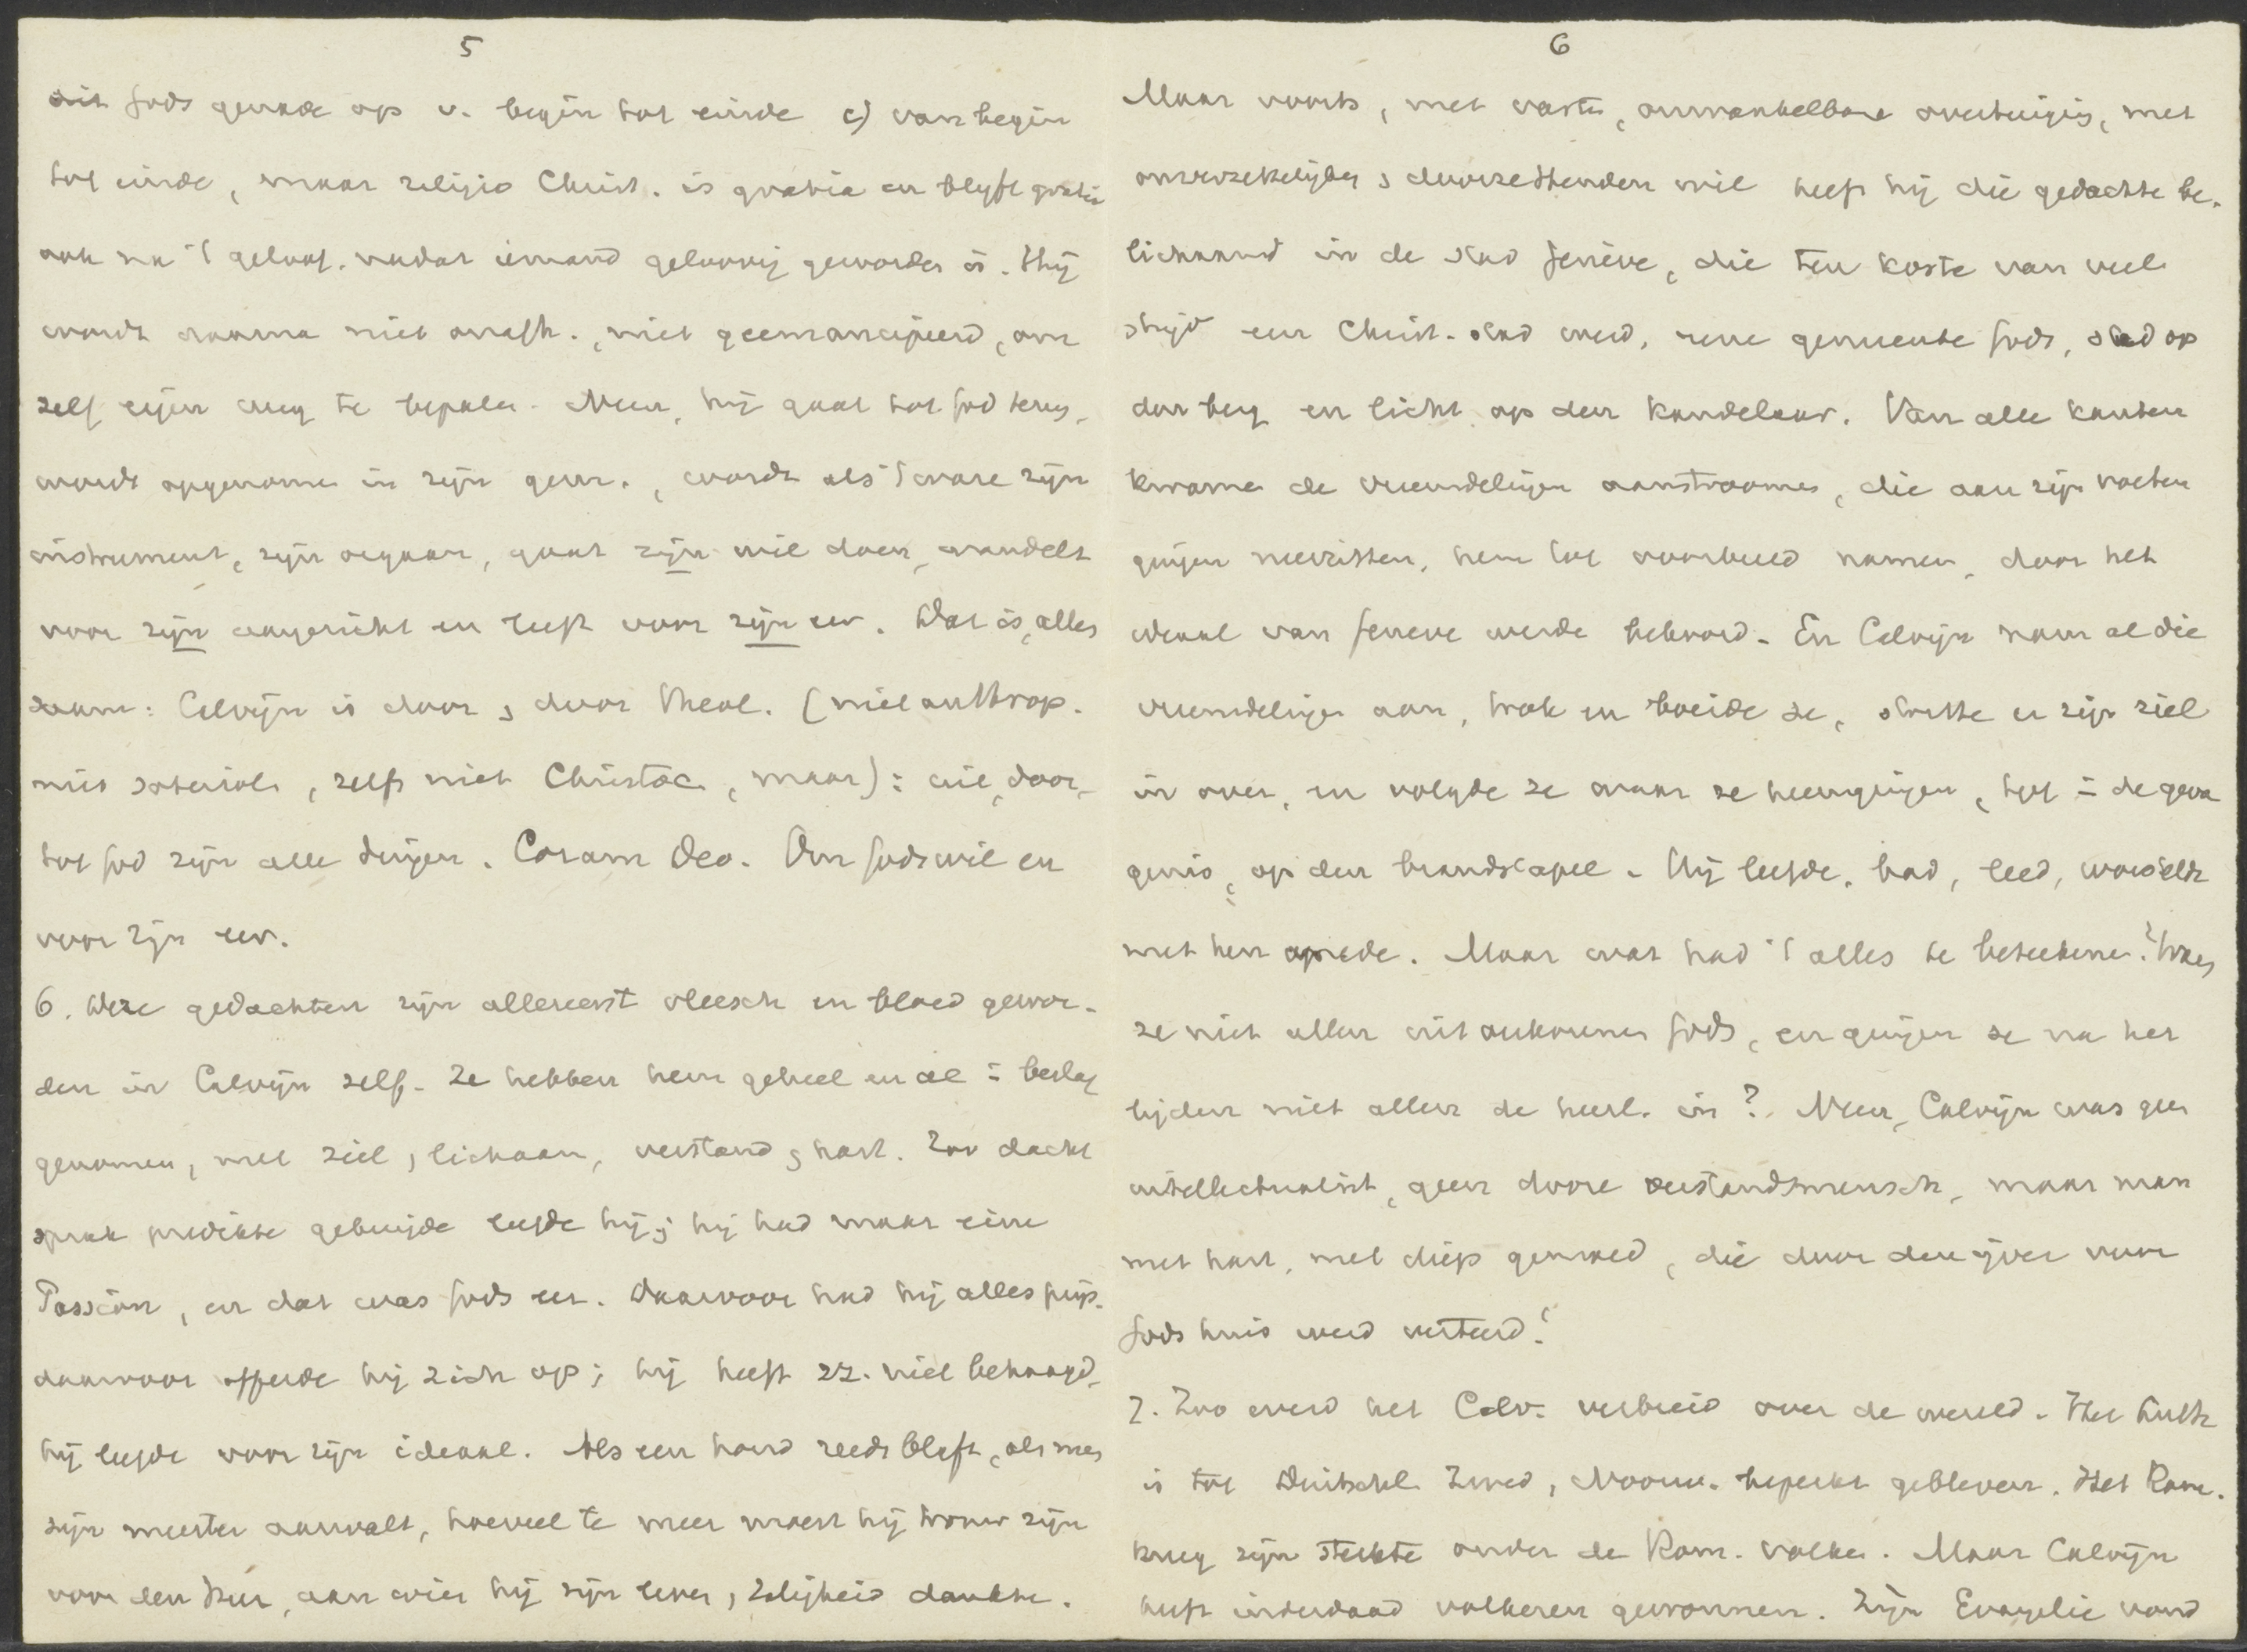 5
uit Gods genade op v. begin tot einde c) van begin
tot einde, maar religio Christ. is gratia en blyft gratia
ook na 't geloof. nadat iemand geloovig geworden is. Hij
wordt daarna niet onafh., niet geemancipeerd, om
zelf eigen weg te bepalen. Neen, hij gaat tot God terug,
wordt opgenomen in zijn gem., wordt als 't ware zijn
instrument, zijn orgaan, gaat zijn wil doen, wandelt
voor zijn aangezicht en leeft voor zijn eer. Dat is, alles
saam: Calvijn is door & door theol. (niet anthrop.
niet soteriol., zelfs niet Christoc, maar): uit, door,
tot God zijn alle dingen. Coram Deo. Om Gods wil en
voor zijn eer.
6. Deze gedachten zijn allereerst vleesch en bloed gewor-
den in Calvijn zelf. Ze hebben hem geheel en al = beslag
genomen, met ziel, lichaam, verstand & hart. Zoo dacht
sprak predikte getuigde leefde hij; hij had maar eene
Passion, en dat was Gods eer. Daarvoor had hij alles prijs.
daarvoor offerde hij zich op; hij heeft zz. niet behaagd,
hij leefde voor zijn ideaal. Als een hond reeds blaft, als men
zijn meester aanvalt, hoeveel te meer moest hij trouw zijn
voor den Heer, aan wien hij zijn leven, zaligheid dankte.
6
Maar voorts, met vaste, onwankelbare overtuiging, met
onverzettelijken & doorzettenden wil heeft hij die gedachte be-
lichaamd in de stad Genève, die ten koste van veel
strijd een Christ. stad werd, eene gemeente Gods, stad op
den berg en licht op den kandelaar. Van alle kanten
kwamen de vreemdelingen aanstroomen, die aan zijn voeten
gingen neerzitten, hem tot voorbeeld namen, door het
ideaal van Geneve werden bekoord. En Calvijn nam al die
vreemdelingen aan, trok en boeide ze, stortte er zijn ziel
in over, en volgde ze waar ze heengingen, tot = de geva
genis, op den brandstapel. Hij leefde, bad, leed, worstelde
met hen mede. Maar wat had 't alles te beteekenen? Waren
ze niet allen uitverkorenen Gods, en gingen ze na het
lijden niet allen de heerl. in? Neen, Calvijn was geen
intellectualist, geen dorre verstandsmensch, maar man
met hart, met diep gemoed, die door den ijver voor
Gods huis werd verteerd!
7. Zoo werd het Calv. verbreid over de wereld. Het Luth
is tot Duitschl. Zwed, Noorw. beperkt gebleven. Het Rom.
kreeg zijn sterkte onder de Rom. volken. Maar Calvijn
heeft inderdaad volkeren gewonnen. Zijn Evangelie vond